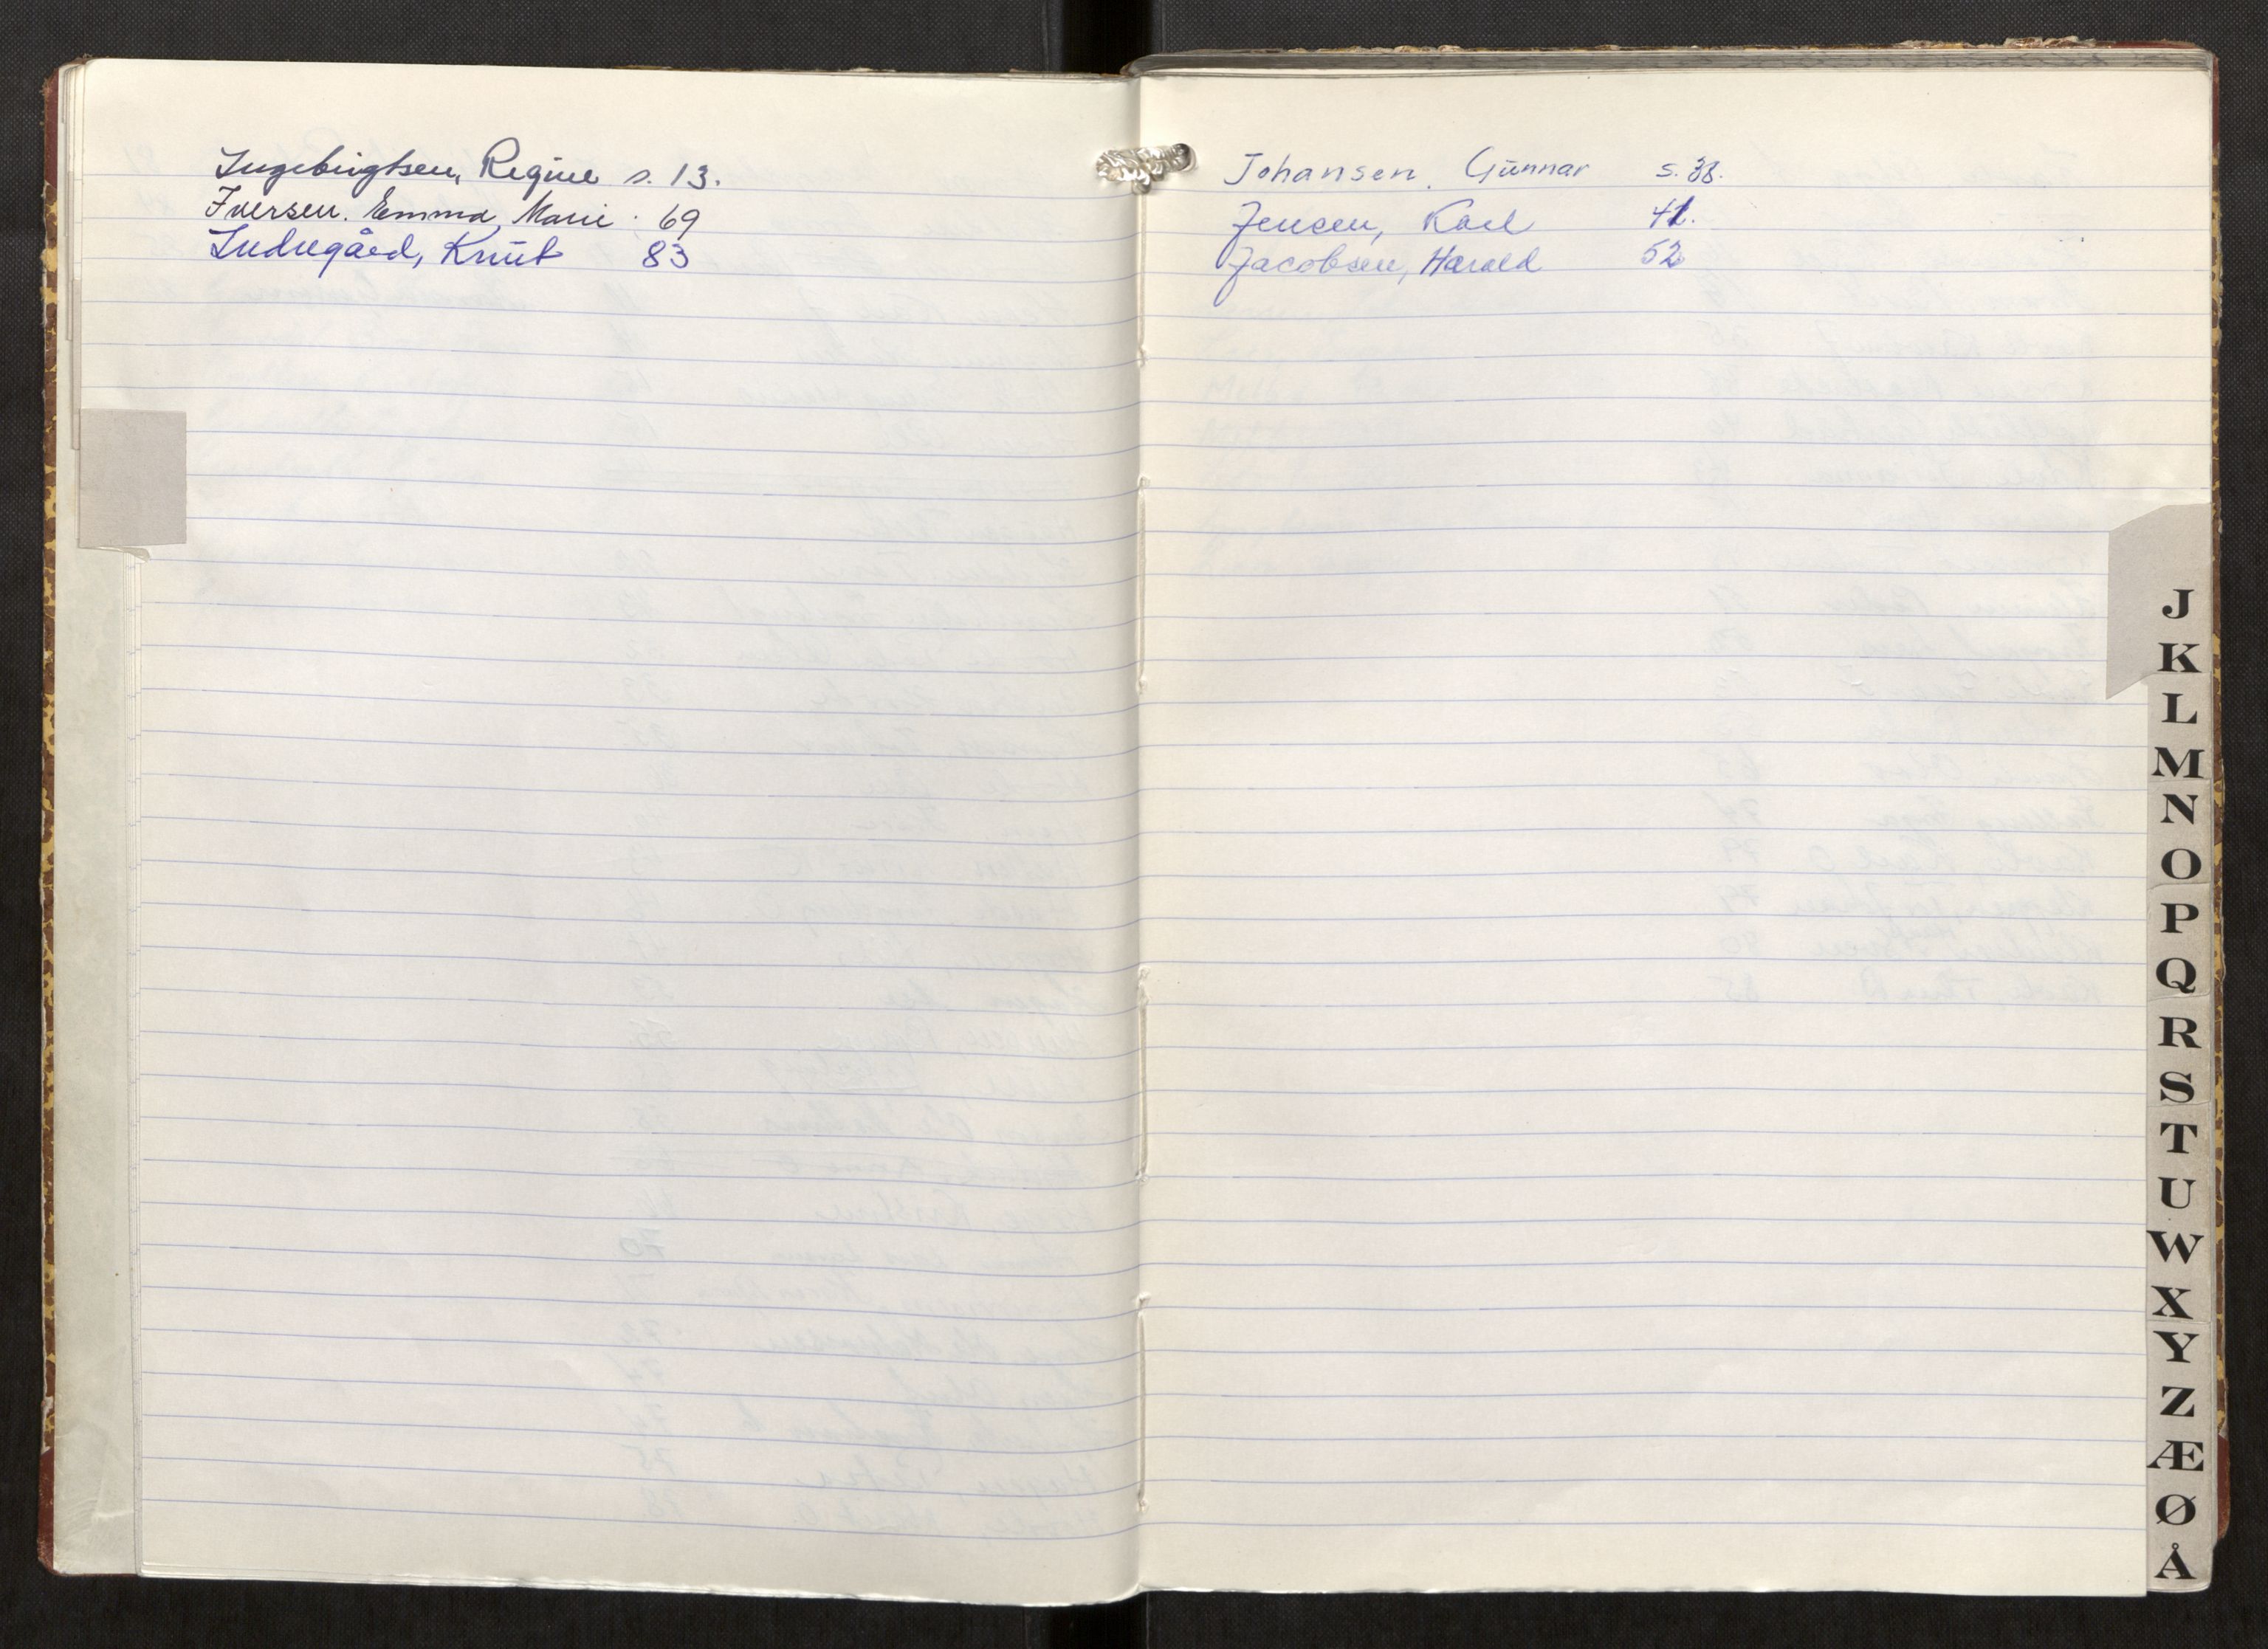 Ingebrigtsen, Regine s. 13.
Iversen. Emma Marie. 69
Indregård, Knut 83
Johansen, Gunnar s. 38.
Jensen, Karl 41.
Jacobsen, Harald 52
J
K
L
M
N
O
P
Q
R
S
T
U
W
X
Y
Z
Æ
Ø
Å